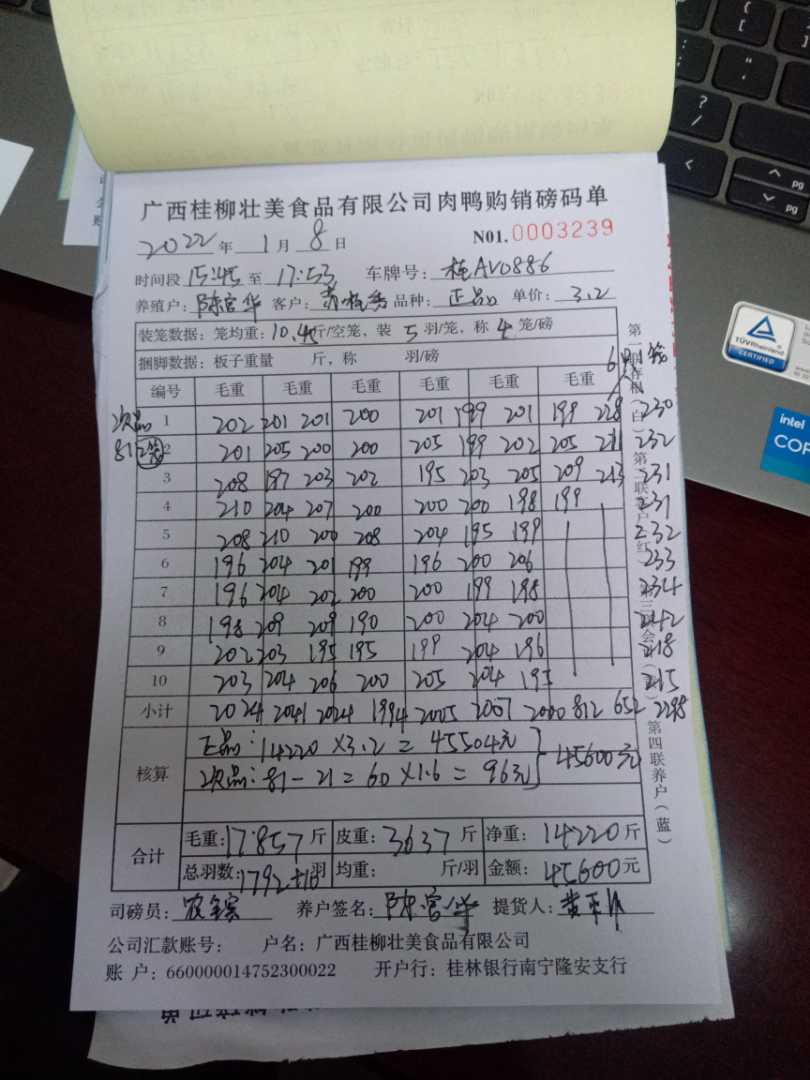 广西桂柳壮美食品有限公司肉鸭购销磅码单
2022年 1月 8日 N01.0003239
时间段 15:45 至 17:53 车牌号: 桂AV0886
养殖户: 陈官华 客户: 品种: 正品 单价: 3.2
装笼数据: 笼均重: 斤/空笼, 装 5 羽/笼, 称 4 笼/磅
捆脚数据: 板子重量 斤, 称 羽/磅
编号 毛重 毛重 毛重 毛重 毛重 毛重
次品 1 202 201 201 200 201 199 201 199 228 230
81 2 201 205 200 200 205 199 202 205 211 232
3 208 197 203 202 195 203 205 209 213 231
4 210 204 207 200 200 200 198 199 231
5 208 210 200 208 204 195 199 232
6 196 204 201 199 196 200 206 233
7 196 204 202 200 200 199 198 234
8 198 209 209 190 200 204 200 242
9 202 203 195 195 199 204 196 218
10 203 204 206 200 205 204 195 215
小计 2024 2041 2024 1994 2005 2007 2000 812 652 2298
核算
正品: 14220 ×3.2 = 45504元
次品: 81-21=60 ×1.6 = 96元
45600元
合计
毛重: 17857 斤 皮重: 3637 斤 净重: 14220 斤
总羽数: 1792+10羽 均重: 斤/羽 金额: 45600元
司磅员: 养户签名: 陈官华 提货人:
公司汇款账号: 户名: 广西桂柳壮美食品有限公司
账 户: 660000014752300022 开户行: 桂林银行南宁隆安支行
第四联养户(蓝)
TÜVRheinland
CERTIFIED
intel